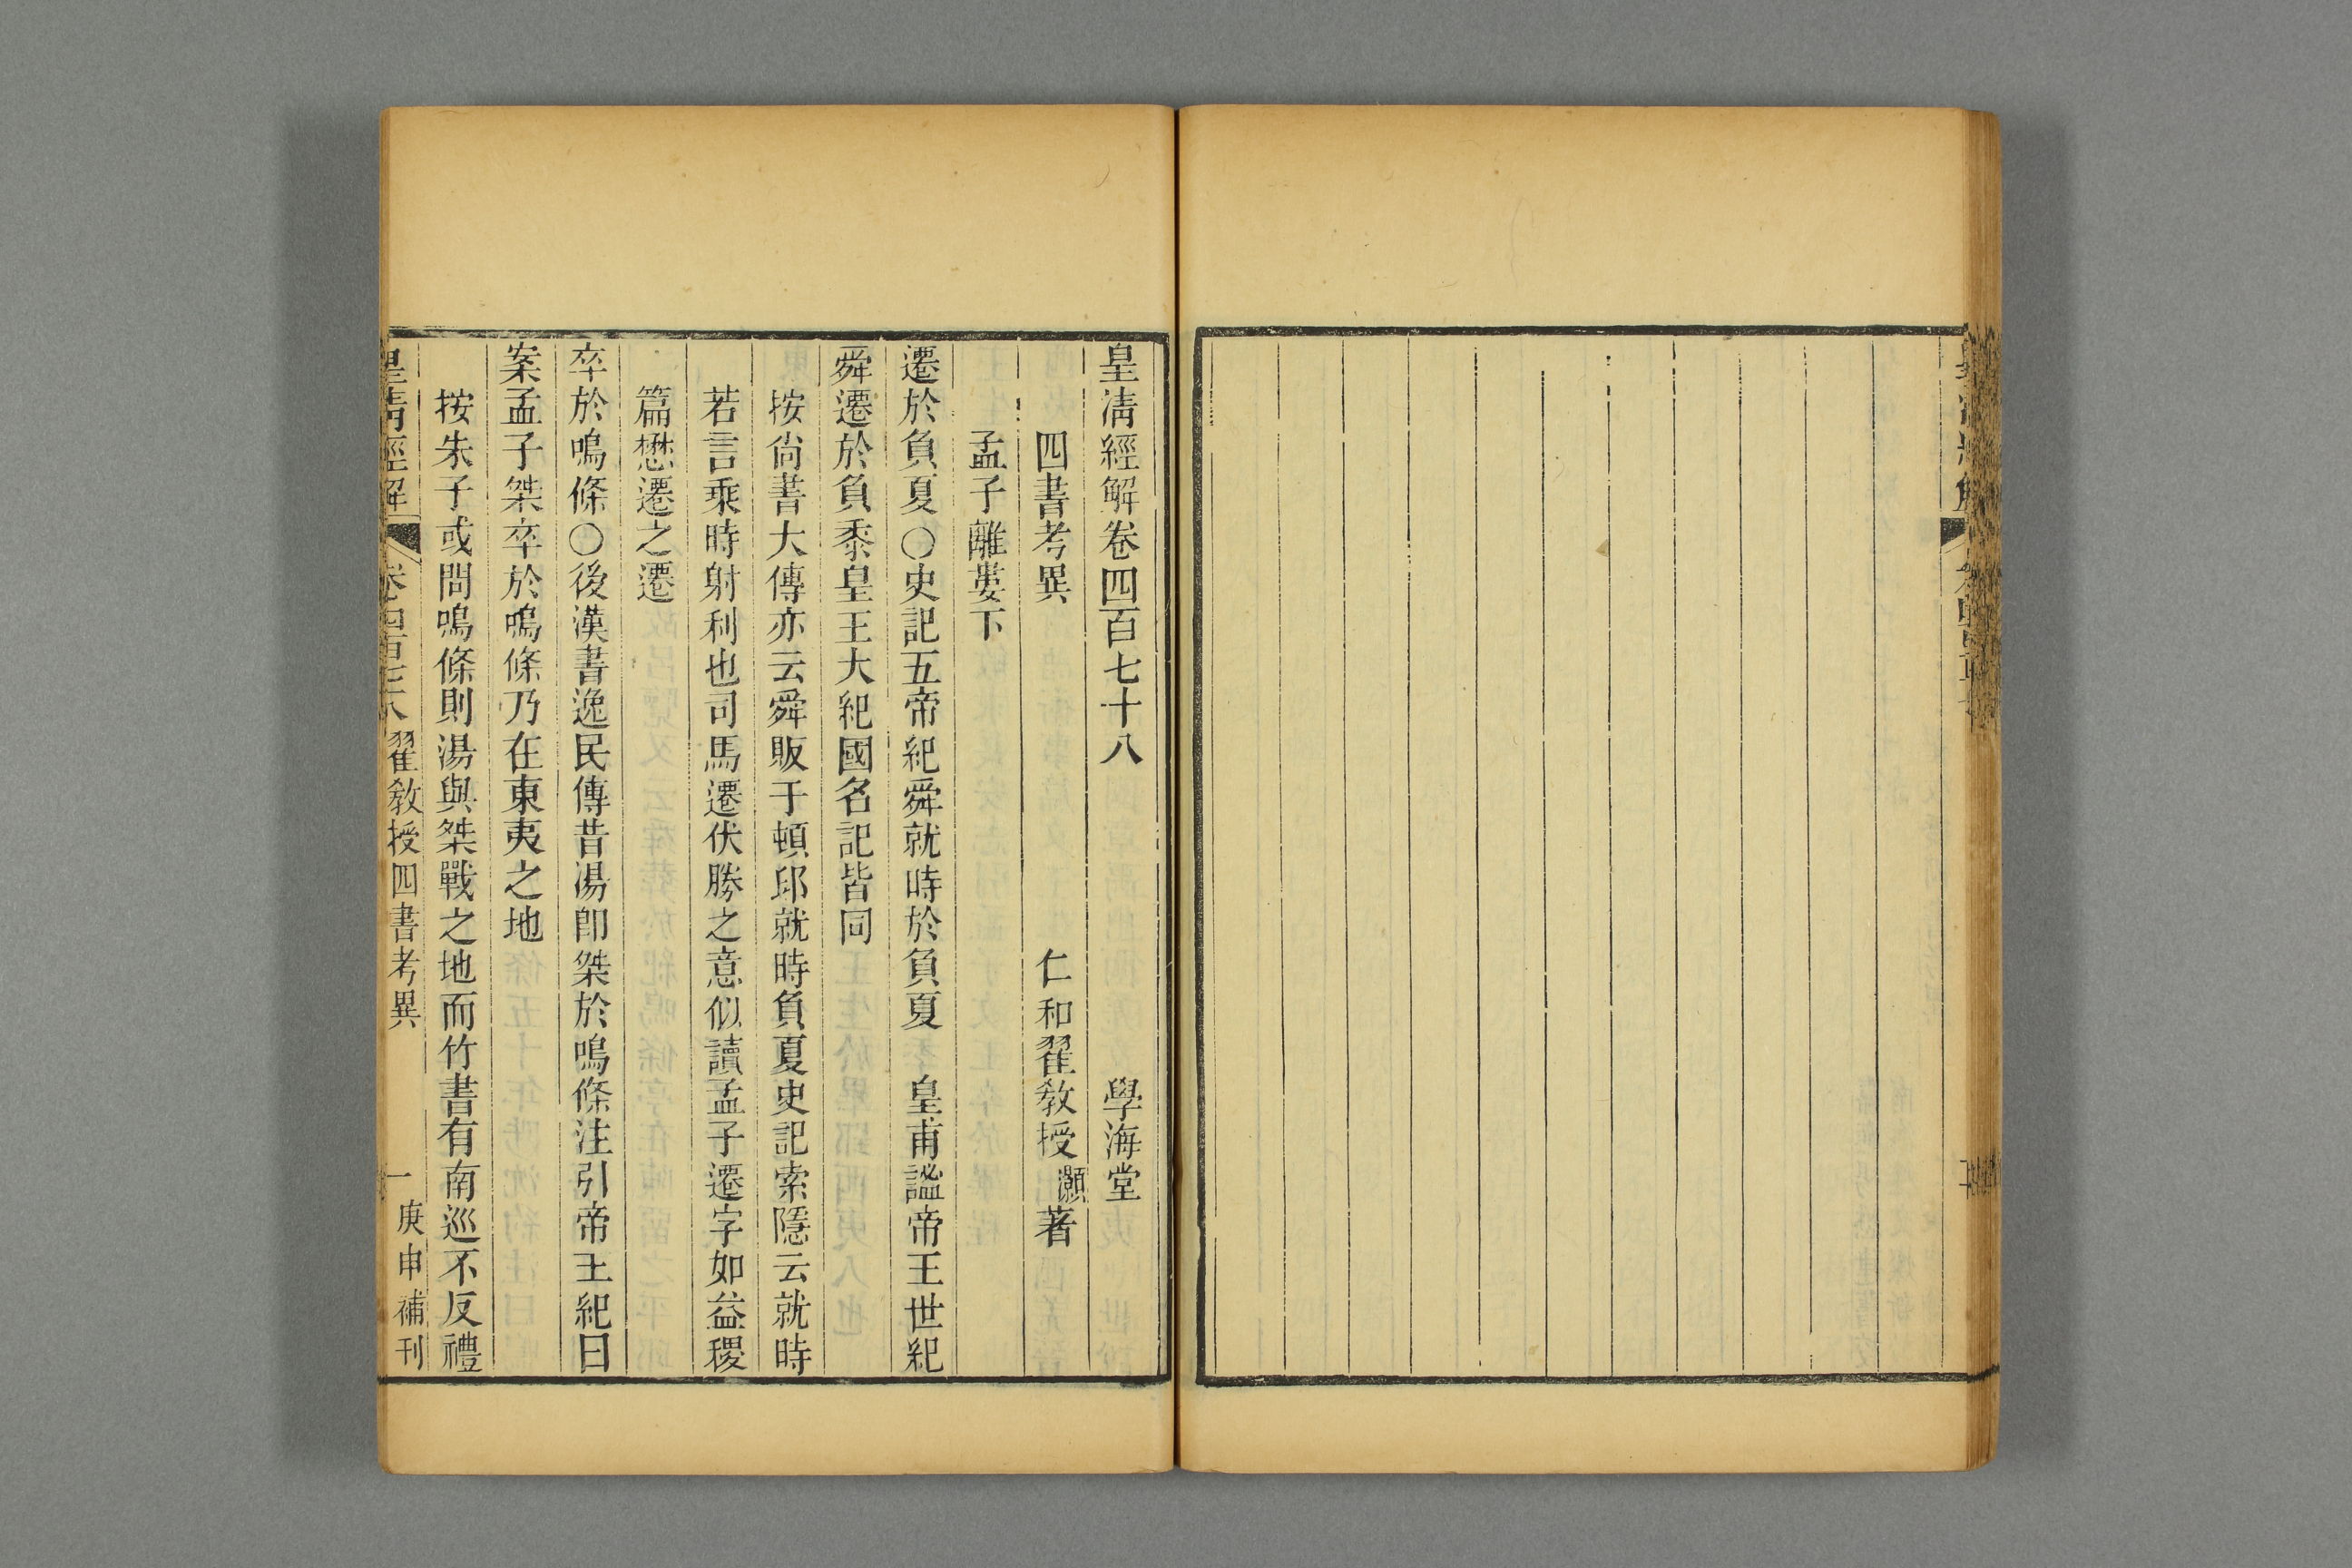 皇清經解卷四百七十八　學海堂
四書考異　仁和翟敎授灝著
孟子離婁下
遷於負夏○史記五帝紀舜就時於負夏　皇甫謐帝王世紀
舜遷於負黍皇王大紀國名記皆同
按尙書大傳亦云舜販于頓邱就時負夏史記索隱云就時
若言乘時射利也司馬遷伏勝之意似讀孟子遷字如益稷
篇懋遷之遷
卒於鳴條○後漢書逸民傳昔湯卽桀於鳴條注引帝王紀曰
案孟子桀卒於鳴條乃在東夷之地
按朱子或問鳴條則湯與桀戰之地而竹書有南巡不反禮
皇清經解　卷四百七十八　翟敎授四書考異　一　庚申補刊